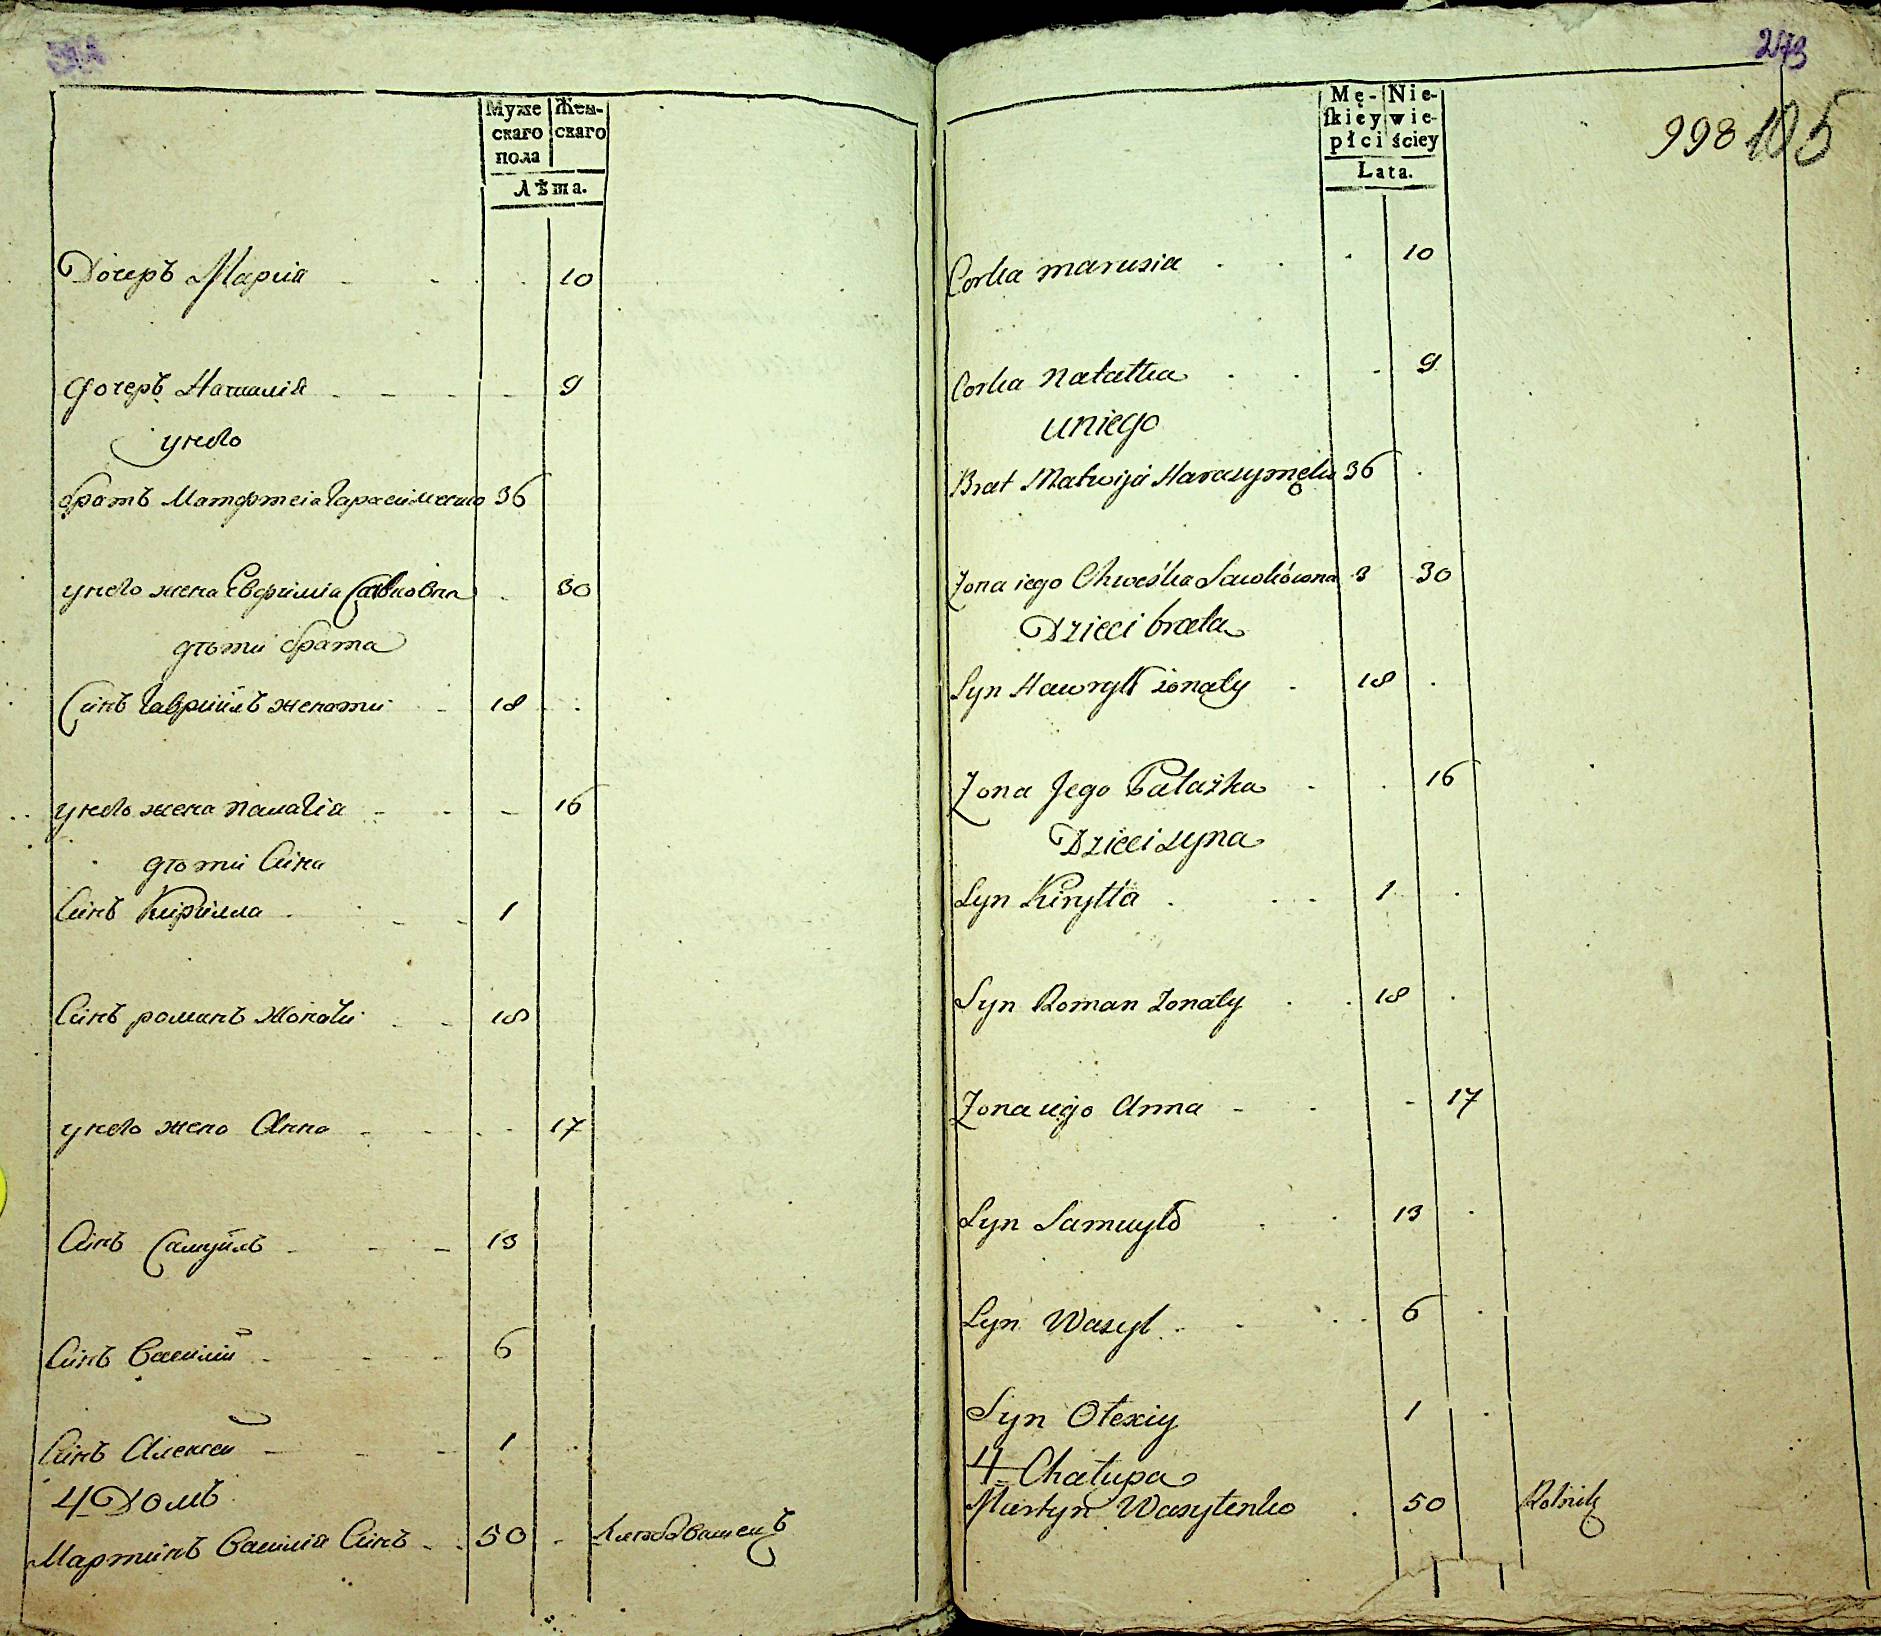 Муже
скаго
пола
Жен-
скаго
Лѣта.
Дочеръ Мария 10
дочеръ Наталія 9
унего
братъ Матфтеiа Гарасименко 36
унего жена Евфимiа Савковна 30
дѣти брата
Синъ Гавриилъ женоти 18
унего жена Палагiа 16
дѣти Сина
Синъ Кирилла 1
Синъ романъ Жонати 18
унего жена Анна 17
Синъ Самуилъ 13
Синъ Василий 6
Синъ Алексей 1
4 Домъ
Мартинъ Василiа Синъ 50 Хлѣбопашецъ
273
998 105
Mę-
skiey
płci
Nie-
wie-
ściey
Lata.
Corka marusia 10
Corka Natałka 9
uniego
Brat Matwija Harasymęko 36
Zona iego Chweśka Sawkówna 3 30
Dzieci brata
Syn Hawryło żonaty 18
Zona Jego Pałażka 16
Dzieci syna
Syn Kiryłło 1
Syn Roman Zonaty 18
Zona iego Anna 17
Syn Samuyło 13
Syn Wasyl 6
Syn Ołexiy 1
4 Chałupa
Martyn Wasylenko 50 Rolnik